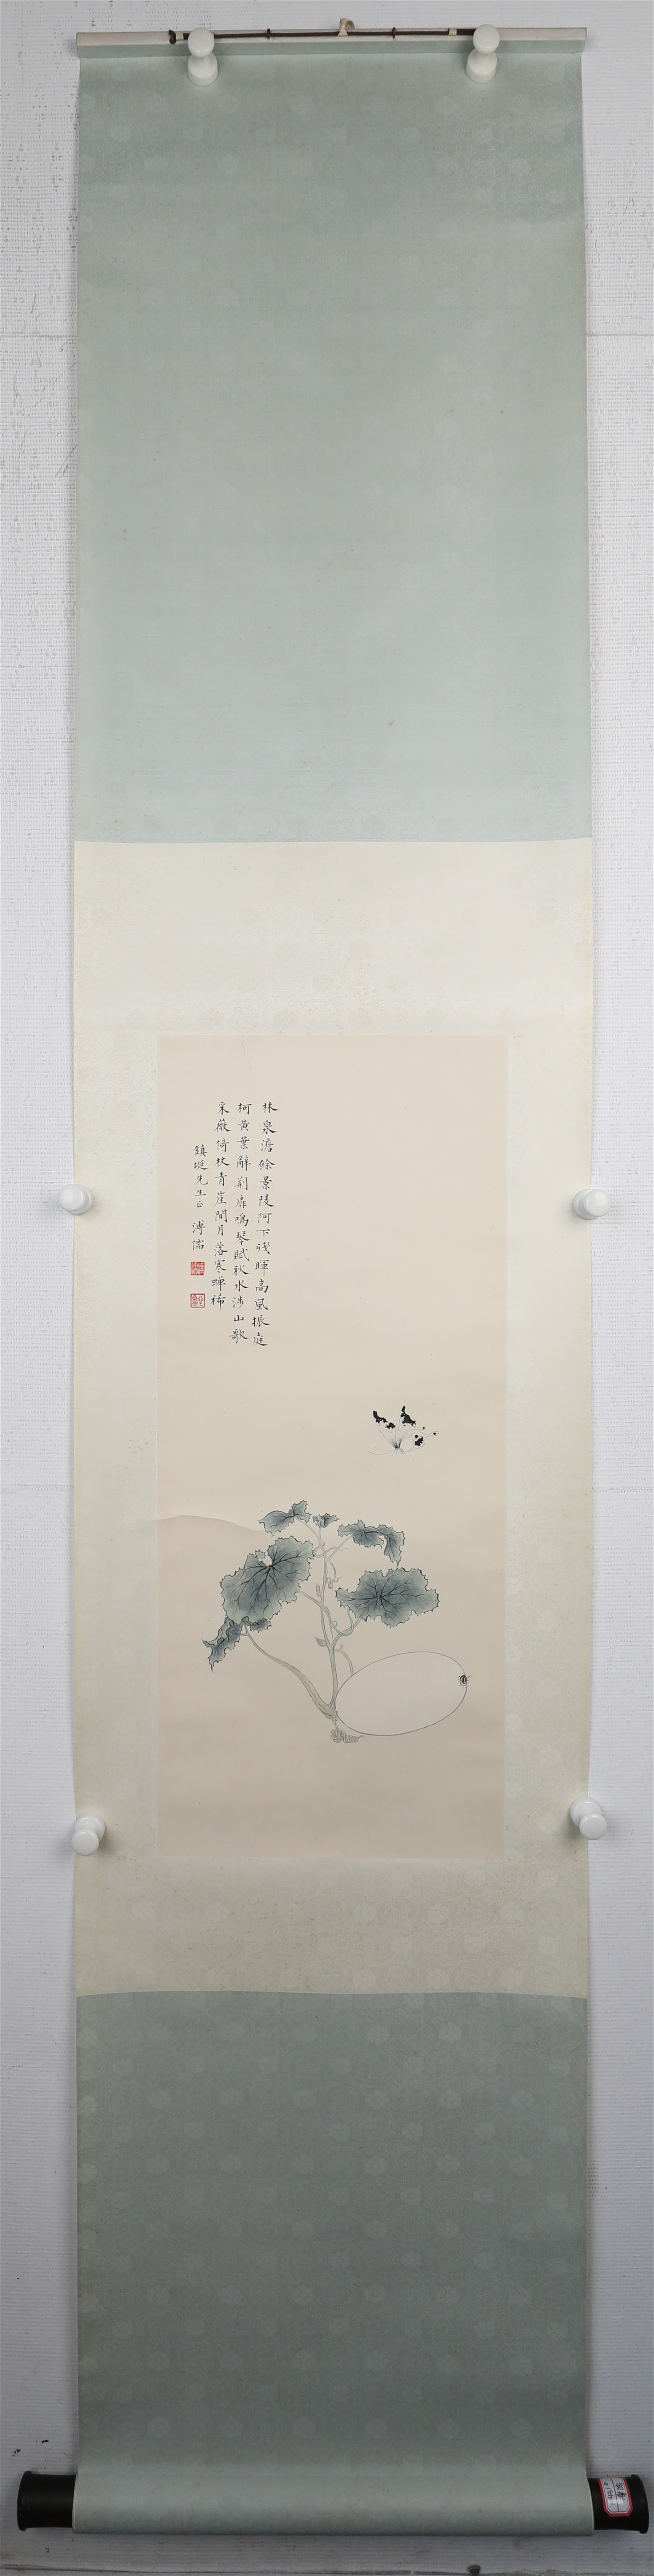 林泉澹餘景陵阿下殘暉高風振庭
柯黃葉辭荊扉鳴琴賦秋水涉山歌
采薇倚杖青崖間月落寒蟬稀
鎮璇先生正 溥儒